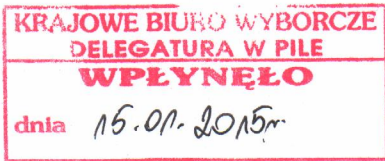 KRAJOWE BIURO WYBORCZE
DELEGATURA W PILE
WPŁYNĘŁO
dnia 15.01.2015r.